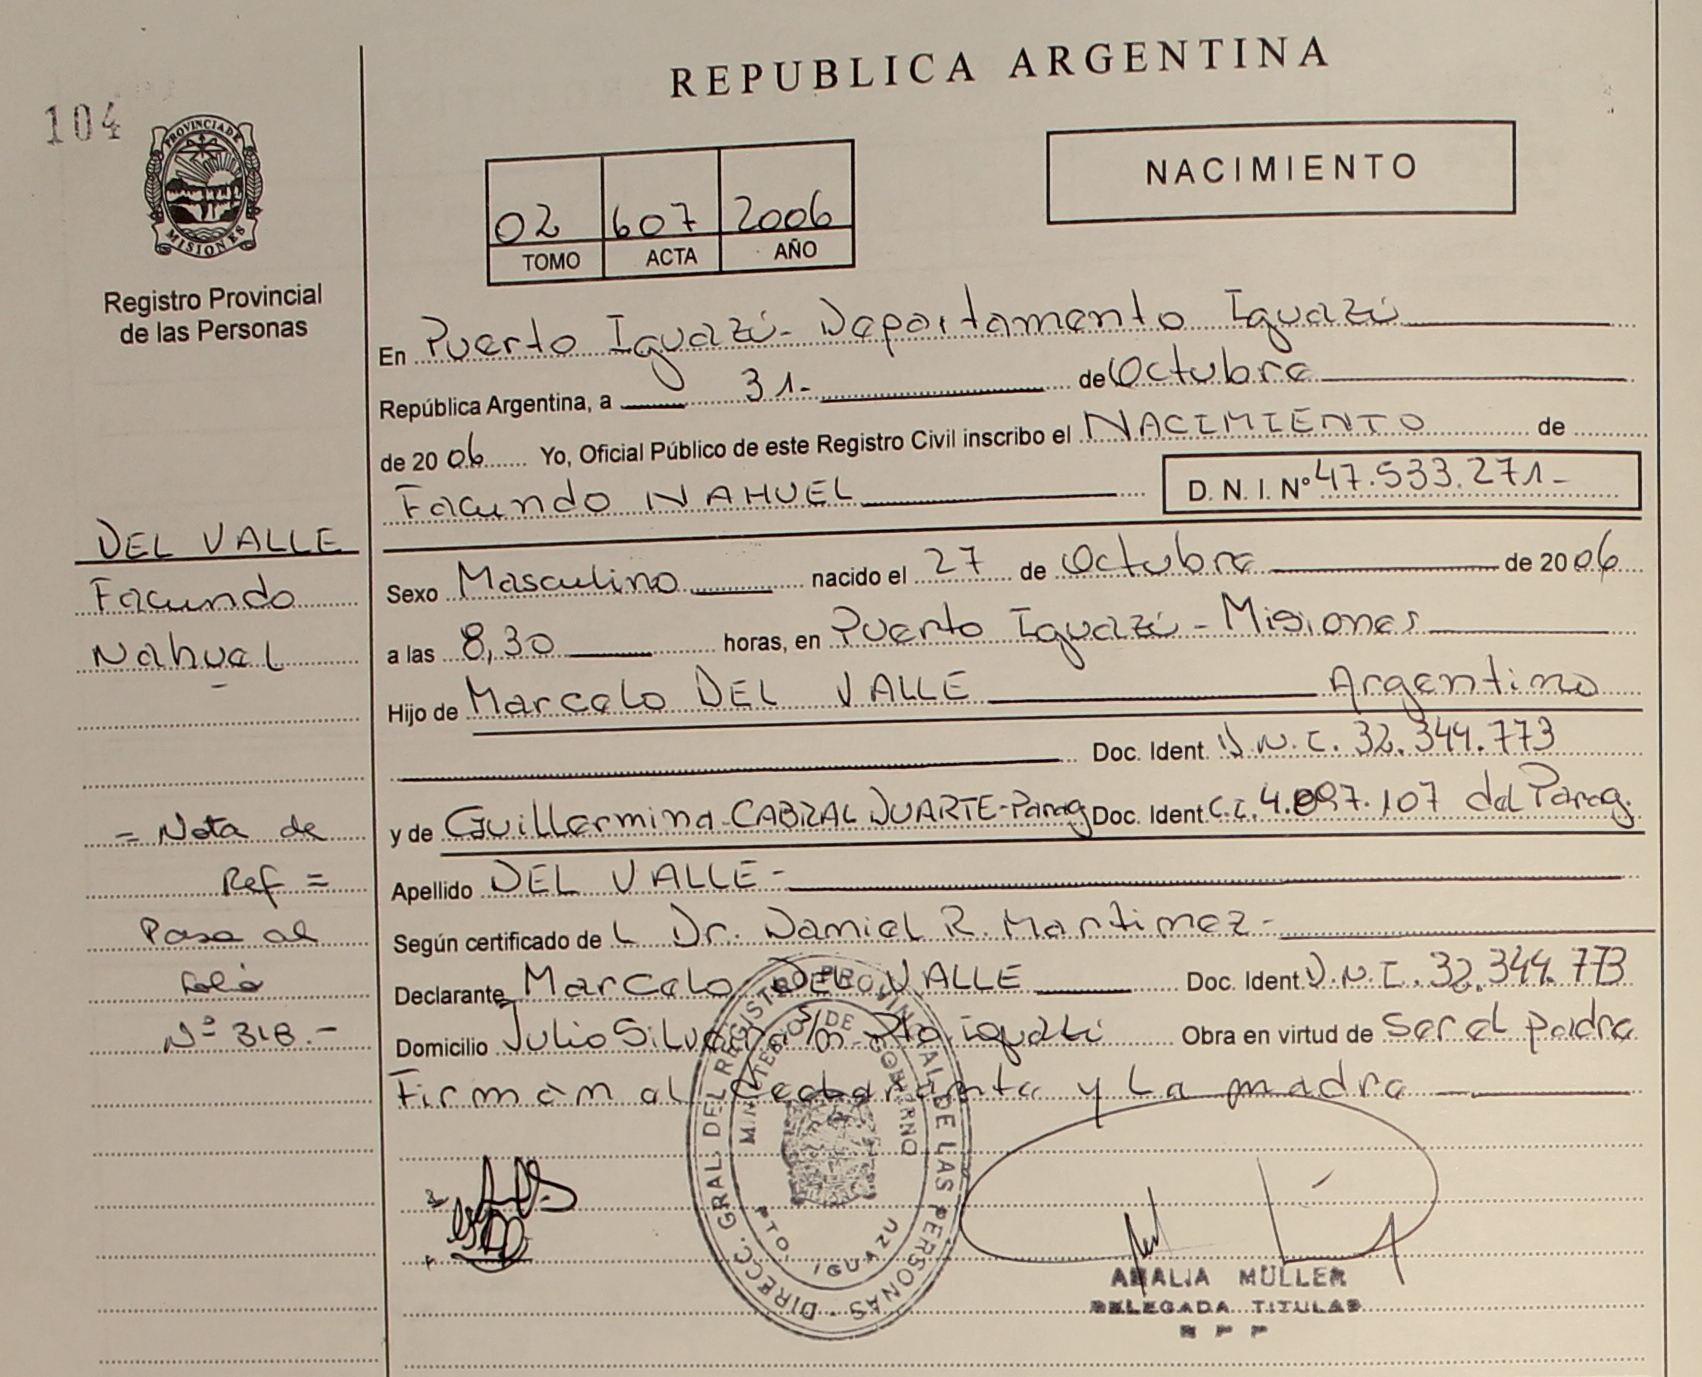 REPUBLICA ARGENTINA
104
PROVINCIA DE
MISIONES
Registro Provincial
de las Personas
NACIMIENTO
02 607 2006
TOMO ACTA AÑO
En Puerto Iguazú - Departamento Iguazú
República Argentina, a 31- de Octubre
de 2006 Yo, Oficial Público de este Registro Civil inscribo el NACIMIENTO de
Facundo NAHUEL D. N. I. Nº 47.533.271-
DEL VALLE
Facundo
Nahuel
Sexo Masculino nacido el 27 de Octubre de 2006
a las 8,30 horas, en Puerto Iguazú - Misiones
Hijo de Marcelo DEL VALLE Argentino
Doc. Ident. D.N.I. 32.344.773
y de Guillermina CABRAL DUARTE-Parag Doc. Ident. C.I. 4.897.107 del Parag.
Apellido DEL VALLE-
Según certificado del Dr. Daniel R. Martinez-
Declarante Marcelo DEL VALLE Doc. Ident. D.N.I. 32.344.773
Domicilio Julio Silvera s/n Pto iguazú Obra en virtud de Ser el padre
Firman el declarante y La madre
= Nota de
Ref =
Pasa al
folio
Nº 318.-
DIRECC. GRAL. DEL REGISTRO PROVINCIAL DE LAS PERSONAS
MINISTERIO DE GOBIERNO
PTO. IGUAZU
AMALIA MULLER
DELEGADA TITULAR